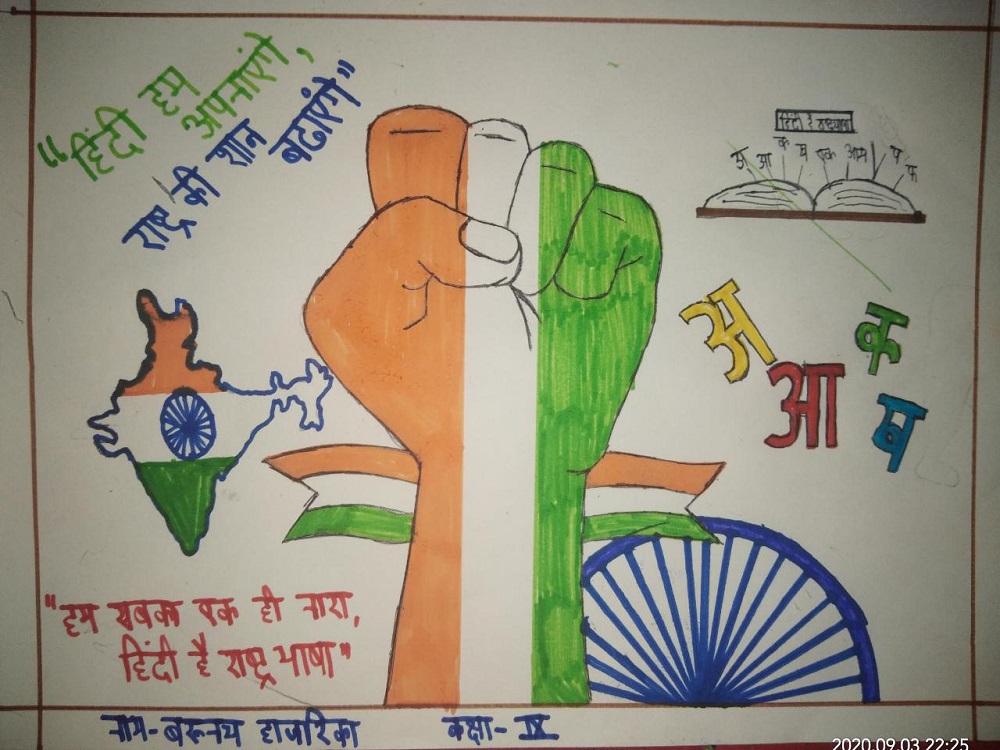 "हिंदी हम
अपनाएंगे,
राष्ट्र की शान
बढाएंगे"
हिंदी है राष्ट्रभाषा
अ आ क म एक आम
अ
आ
क
म
"हम सबका एक ही नारा,
हिंदी है राष्ट्र भाषा"
नाम- हाजरिका कक्षा- IX
2020.09.03 22:25